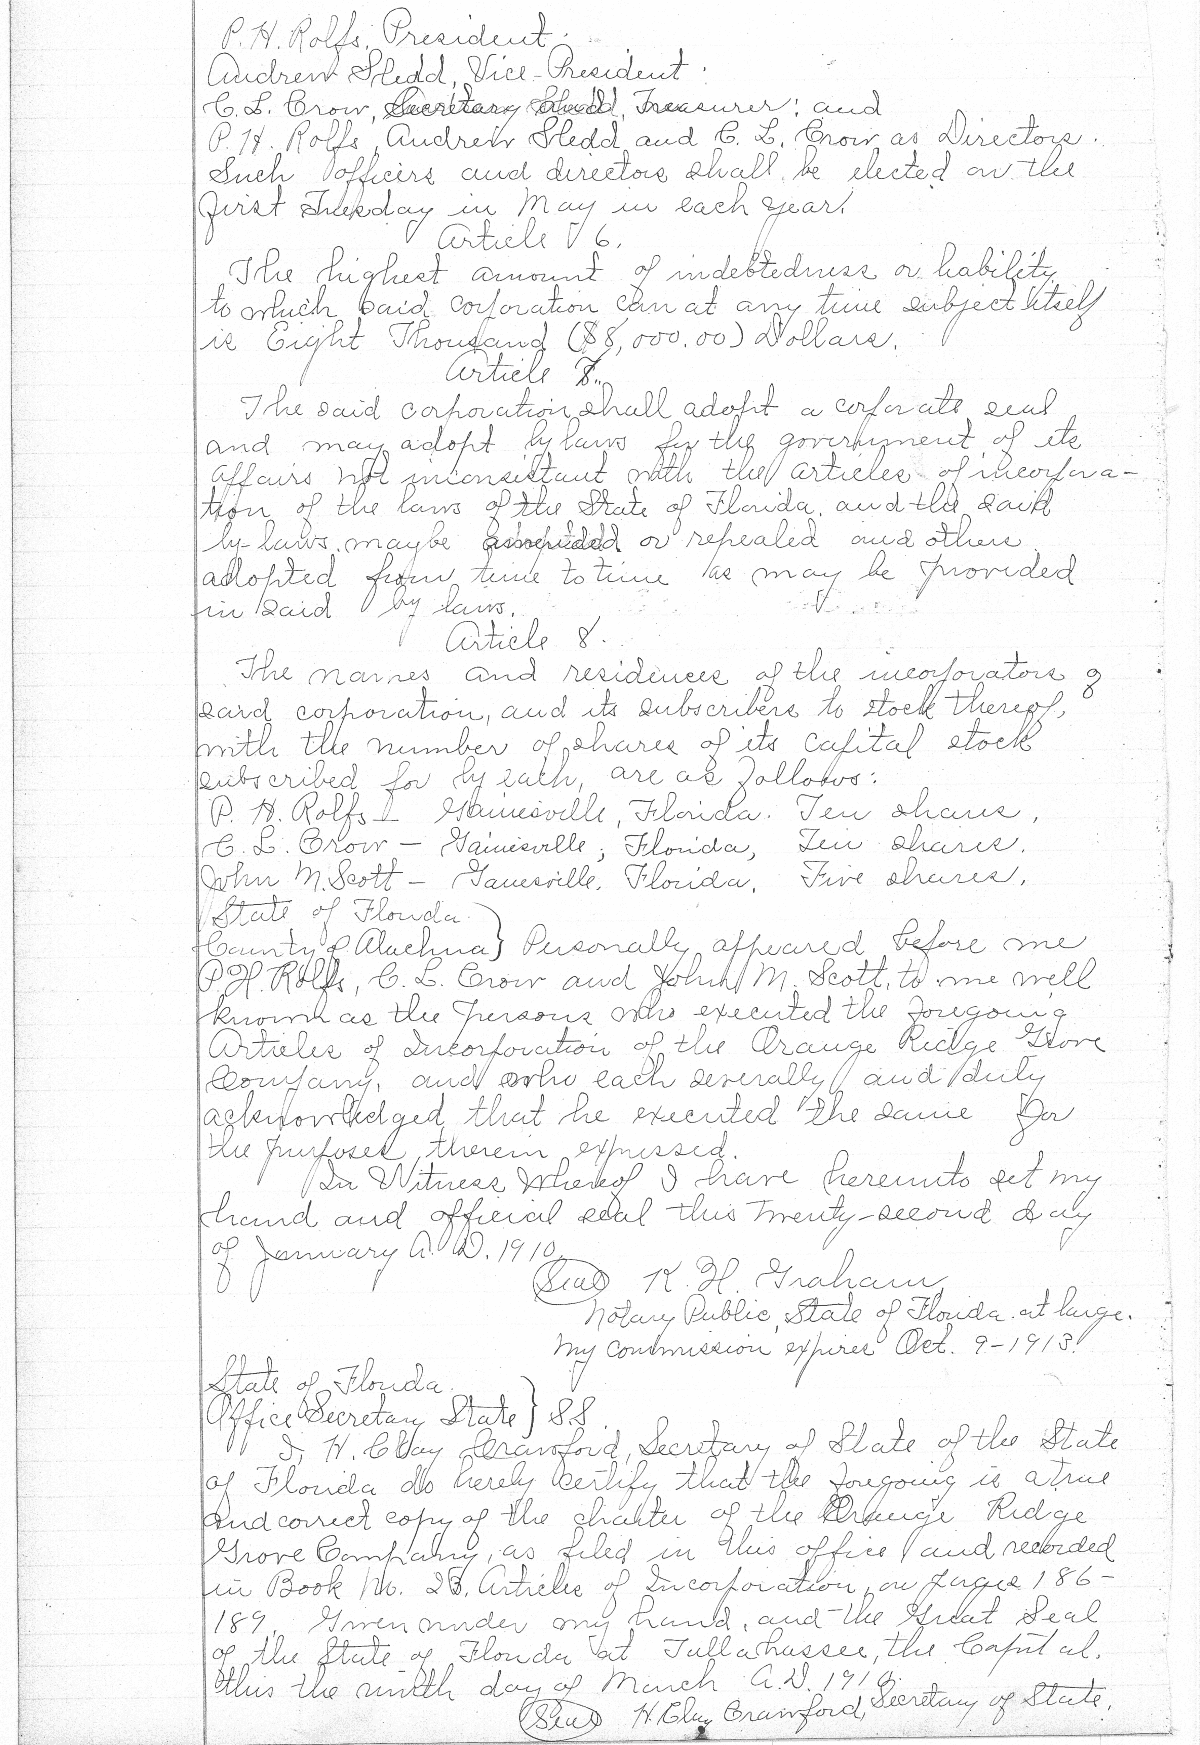 P. H. Rolfs, President.
Andrew Sledd, Vice-President.
C. L. Crow, Secretary and Treasurer; and
P. H. Rolfs, Andrew Sledd and C. L. Crow as Directors.
Such officers and directors shall be elected on the
first Tuesday in May in each year.
Article 6.
The highest amount of indebtedness or liability
to which said corporation can at any time subject itself
is Eight Thousand ($8,000.00) Dollars.
Article 7.
The said corporation shall adopt a corporate seal
and may adopt by laws for the government of its
affairs not inconsistant with the articles of incorpora-
tion of the laws of the State of Florida, and the said
by-laws maybe amended or repealed and others
adopted from time to time as may be provided
in said by laws.
Article 8.
The names and residences of the incorporators of
said corporation, and its subscribers to stock thereof,
with the number of shares of its capital stock
subscribed for by each, are as follows:
P. H. Rolfs - Gainesville, Florida. Ten shares,
C. L. Crow - Gainesville, Florida, Ten shares.
John M. Scott - Gainesville, Florida, Five shares.
State of Florida
County of Alachua } Personally appeared before me
P. H. Rolfs, C. L. Crow and John M. Scott, to me well
known as the persons who executed the foregoing
Articles of Incorporation of the Orange Ridge Grove
Company, and who each severally and duly
acknowledged that he executed the same for
the purposes therein expressed.
In Witness Whereof I have hereunto set my
hand and official seal this twenty-second day
of January A. D. 1910.
(Seal) K. H. Graham,
Notary Public, State of Florida at large.
My commission expires Oct. 9-1913.
State of Florida
Office Secretary State } SS.
I, H. Clay Crawford, Secretary of State of the State
of Florida do hereby certify that the foregoing is a true
and correct copy of the charter of the Orange Ridge
Grove Company, as filed in this office and recorded
in Book No. 23, Articles of Incorporation, on pages 186-
189. Given under my hand, and the Great Seal
of the State of Florida at Tallahassee, the Capital,
this the ninth day of March A. D. 1910.
(Seal) H. Clay Crawford, Secretary of State.